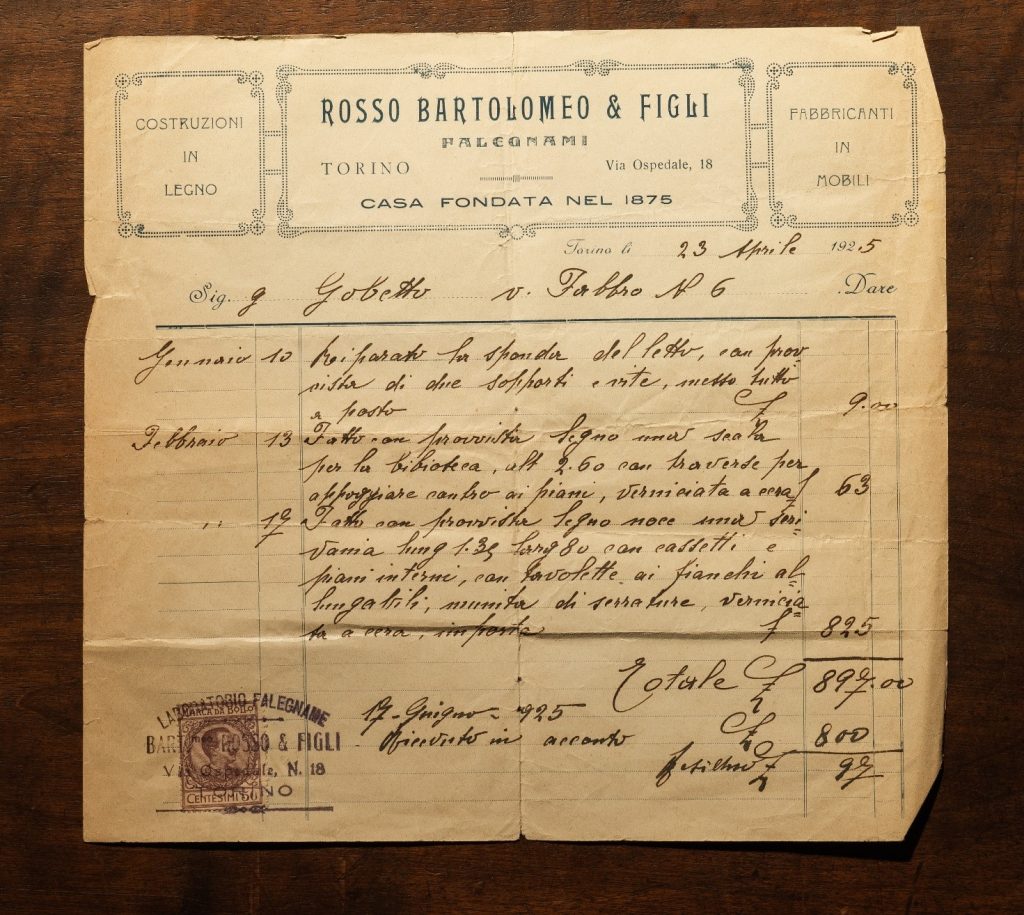 COSTRUZIONI
IN
LEGNO
ROSSO BARTOLOMEO & FIGLI
FALEGNAMI
TORINO Via Ospedale, 18
CASA FONDATA NEL 1875
FABBRICANTI
IN
MOBILI
Torino li 23 Aprile 1925
Sig. g Gobetto v. Fabbro N 6 Dare
Gennaio 10 Reiparato la sponda del letto, con prov-
vista di due sopporti e vite, messo tutto
a posto £ 9.00
Febbraio 13 Fatto con provvista legno una scala
per la bibioteca, alt 2.60 con traverse per
appoggiare contro ai piani, verniciata a cera £ 63
" 17 Fatto con provvista legno noce una scri=
vania lung 1.35 larg 80 con cassetti e
piani interni, con tavolette ai fianchi al=
lungabili, munita di serrature, vernicia=
ta a cera, importa £ 825
Totale £ 897.00
17-Guigno= 925
Ricevuto in acconto £ 800
£ 97
LABORATORIO FALEGNAME
MARCA DA BOLLO
BART ROSSO & FIGLI
Via Ospedale, N. 18
TORINO
CENTESIMI 50